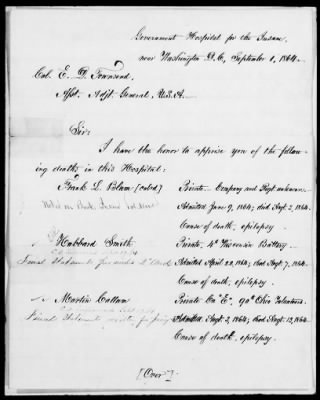 Government Hospital for the Insane,
near Washington D.C., September 1, 1864.
Col. E. D. Townsend,
Asst. Adjt. General, U.S.A.
Sir:
I have the honor to apprise you of the follow-
ing deaths in this Hospital:
Frank L. (colored) Private, Company and Regt unknown.
Admitted June 9, 1864; died Augt. 2, 1864.
Cause of death, epilepsy.
Hubbard Smith Private, 4th Wisconsin Battery.
Final Statements Admitted April 22, 1864; died Augt. 7, 1864.
Cause of death, epilepsy.
Martin Private Co. E, 90th Ohio Volunteers.
Final Statements Admitted Augt. 2, 1864; died Augt. 12, 1864.
Cause of death, epilepsy.
[Over]